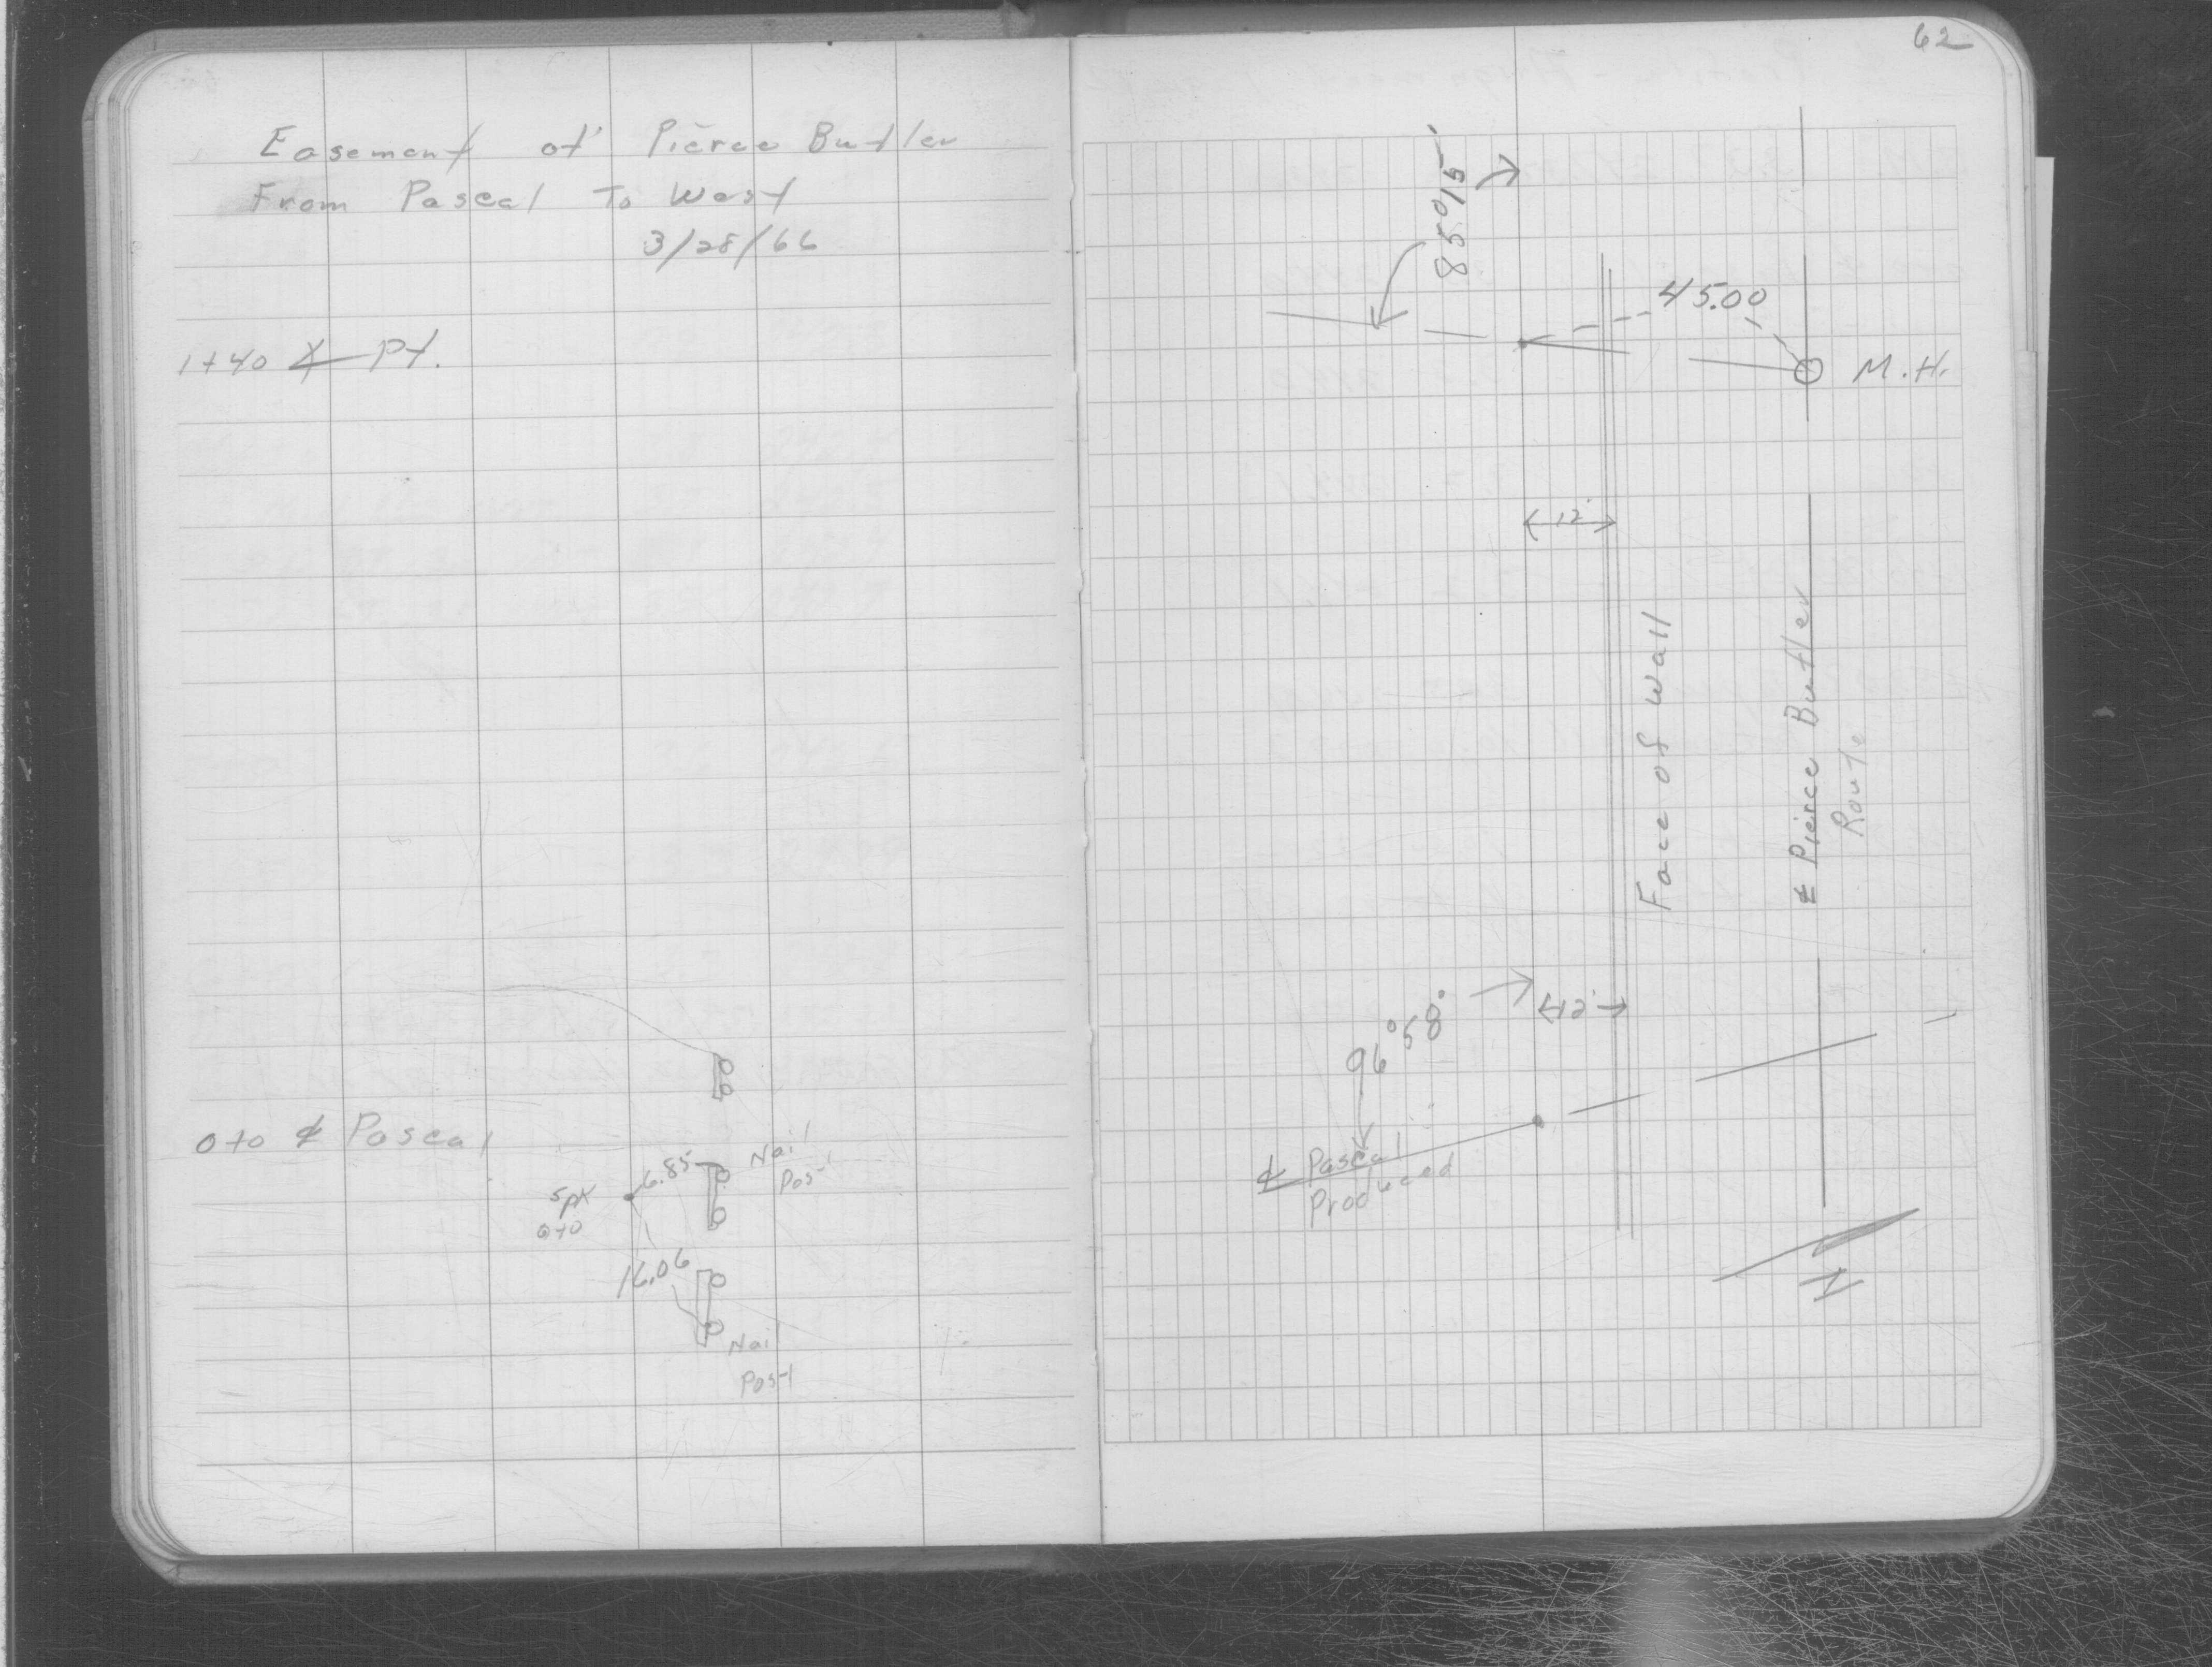 Easement of Pierce Butler
From Pascal To West
3/28/66
1+40 ∠ Pt.
0+0 ℄ Pascal
Nail
Post
6.85
Spk
0+0
16.06
Nail
Post
62
85°15'
45.00
M.H.
12'
Face of Wall
℄ Pierce Butler
Route
12'
96°58'
℄ Pascal
Produced
N